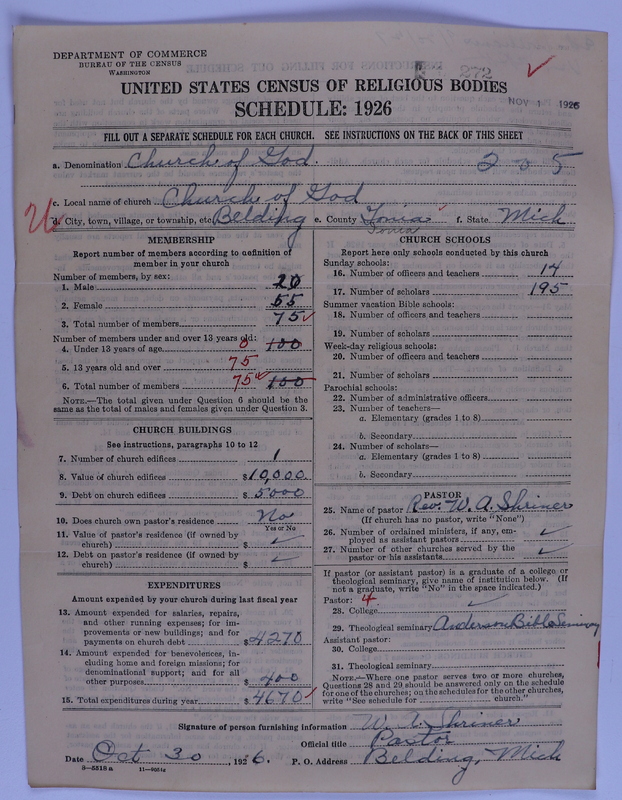 DEPARTMENT OF COMMERCE
BUREAU OF THE CENSUS
WASHINGTON
272
UNITED STATES CENSUS OF RELIGIOUS BODIES
NOV 1 1926
SCHEDULE: 1926
FILL OUT A SEPARATE SCHEDULE FOR EACH CHURCH. SEE INSTRUCTIONS ON THE BACK OF THIS SHEET
a. Denomination Church of God. 2 0 5
c. Local name of church Church of God
d. City, town, village, or township, etc. Belding e. County Ionia f. State Mich
Ionia
MEMBERSHIP
Report number of members according to definition of
member in your church
Number of members, by sex:
1. Male 20
2. Female 55
3. Total number of members 75
Number of members under and over 13 years old:
4. Under 13 years of age 0 100
5. 13 years old and over 75
6. Total number of members 75 100
NOTE.—The total given under Question 6 should be
same as the total of males and females given under Question 3.
CHURCH BUILDINGS
See instructions, paragraphs 10 to 12
7. Number of church edifices 1
8. Value of church edifices $10,000
9. Debt on church edifices $5000
10. Does church own pastor's residence No
Yes or No
11. Value of pastor's residence (if owned by
church) $ ✓
12. Debt on pastor's residence (if owned by
church) $ ✓
EXPENDITURES
Amount expended by your church during last fiscal year
13. Amount expended for salaries, repairs,
and other running expenses; for im-
provements or new buildings; and for
payments on church debt $4270
14. Amount expended for benevolences, in-
cluding home and foreign missions; for
denominational support; and for all
other purposes $400
15. Total expenditures during year $4670
CHURCH SCHOOLS
Report here only schools conducted by this church
Sunday schools:
16. Number of officers and teachers 14
17. Number of scholars 195
Summer vacation Bible schools:
18. Number of officers and teachers
19. Number of scholars
Week-day religious schools:
20. Number of officers and teachers
21. Number of scholars
Parochial schools:
22. Number of administrative officers
23. Number of teachers—
a. Elementary (grades 1 to 8)
b. Secondary
24. Number of scholars—
a. Elementary (grades 1 to 8)
b. Secondary
PASTOR
25. Name of pastor Rev. W. A. Shriner
(If church has no pastor, write "None")
26. Number of ordained ministers, if any, em-
ployed as assistant pastors ✓
27. Number of other churches served by the
pastor or his assistants ✓
If pastor (or assistant pastor) is a graduate of a college or
theological seminary, give name of institution below. (If
not a graduate, write "No" in the space indicated.)
Pastor: 4
28. College ✓
29. Theological seminary Anderson Bible Seminary
Assistant pastor:
30. College
31. Theological seminary
NOTE.—Where one pastor serves two or more churches,
Questions 28 and 29 should be answered only on the schedule
for one of the churches; on the schedules for the other churches,
write "See schedule for church."
Signature of person furnishing information W. A. Shriner
Official title Pastor
Date Oct 30, 1926. P. O. Address Belding, Mich
8—5518a 11—9054